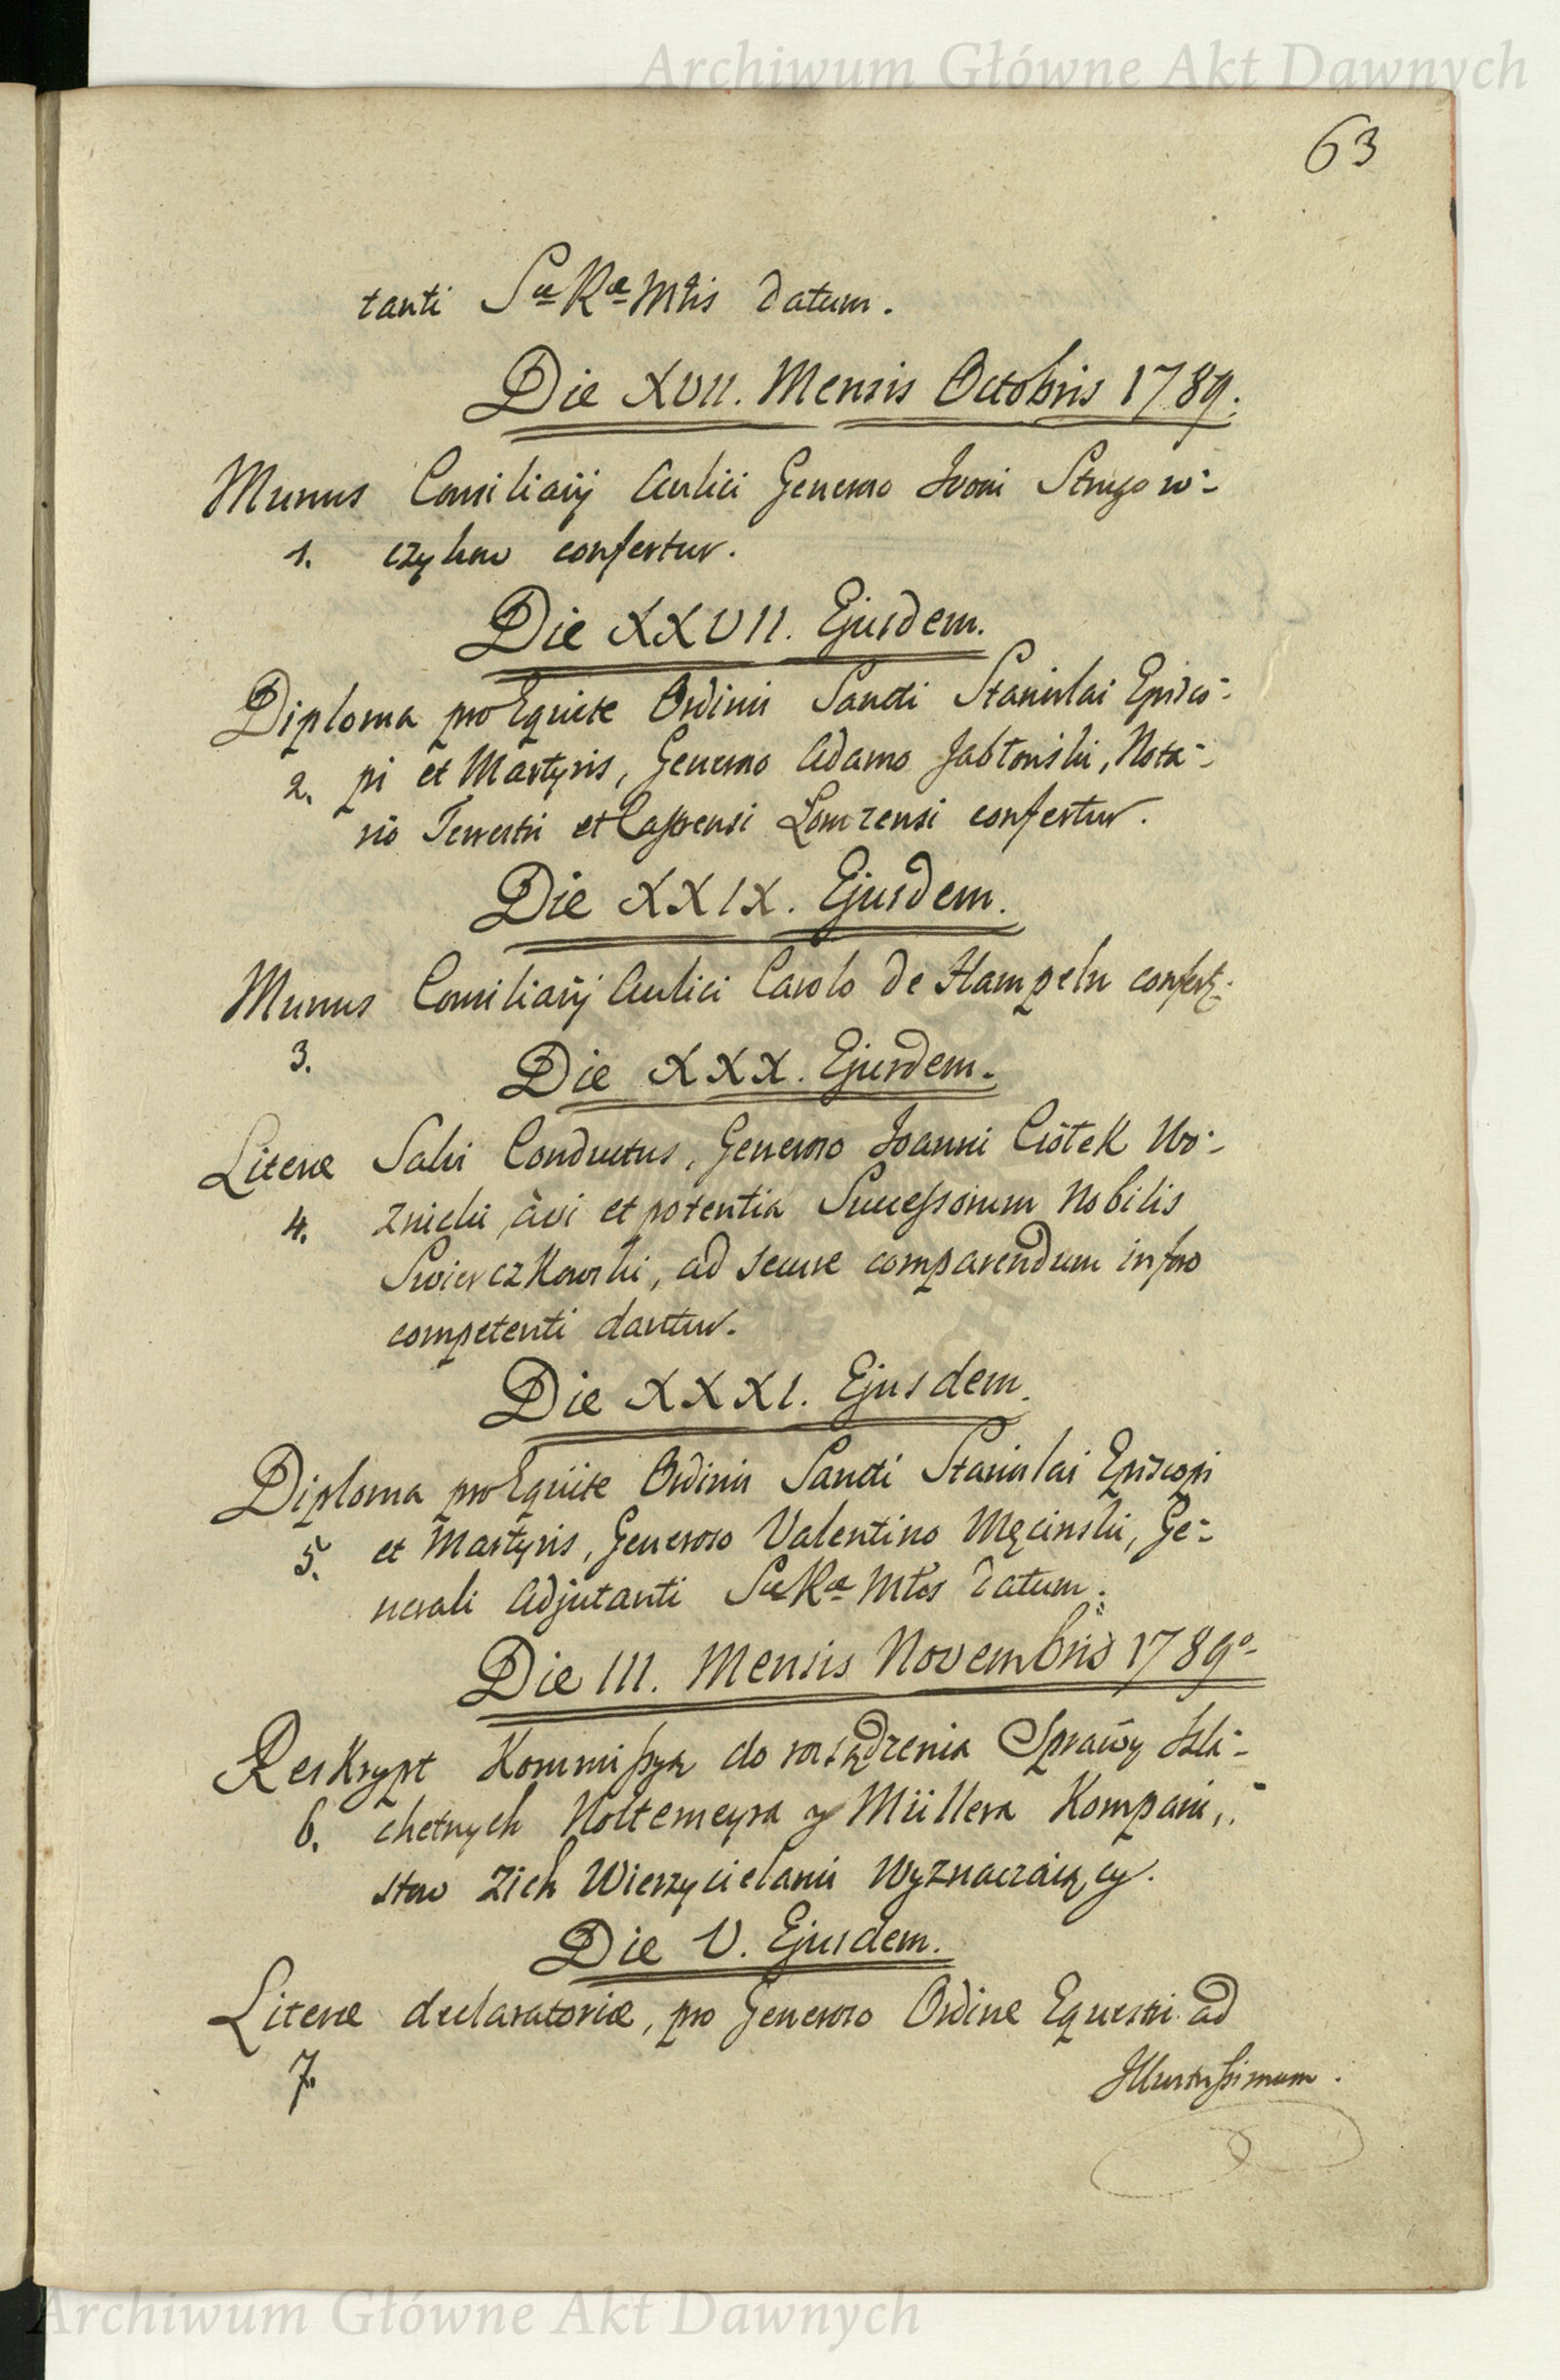 Archiwum Główne Akt Dawnych
63
tanti Sæ Ræ Mtis datum.
Die XVII. Mensis Octobris 1789.
Munus Consiliarij Aulici Generoso Ivoni Strugow-
1. czykow confertur.
Die XXVII. Ejusdem.
Diploma pro Equite Ordinis Sancti Stanislai Episco-
2. pi et Martyris, Generoso Adamo Jabłonski, Nota-
rio Terrestri et Castrensi Lomzensi confertur.
Die XXIX. Ejusdem.
Munus Consiliarij Aulici Carolo de Hampeln confert.
3.
Die XXX. Ejusdem.
Literæ Salvi Conductus, Generoso Joanni Ciołek Wo-
4. znicki, àvi et potentia Successorum Nobilis
Swierczkowski, ad secure comparendum in foro
competenti dantur.
Die XXXI. Ejusdem.
Diploma pro Equite Ordinis Sancti Stanislai Episcopi
5. et Martyris, Generoso Valentino Męcinski, Ge-
nerali Adjutanti Sæ Ræ Mtis datum.
Die III. Mensis Novembris 1789o
Reskrypt Kommissyą do rozsądzenia Sprawy Szla-
6. chetnych Noltemeyra y Müllera Kompani,
stow z ich Wierzycielami Wyznaczaiący.
Die V. Ejusdem.
Literæ declaratoriæ, pro Generoso Ordine Equestri ad
7.
Illustrissimum.
Archiwum Główne Akt Dawnych